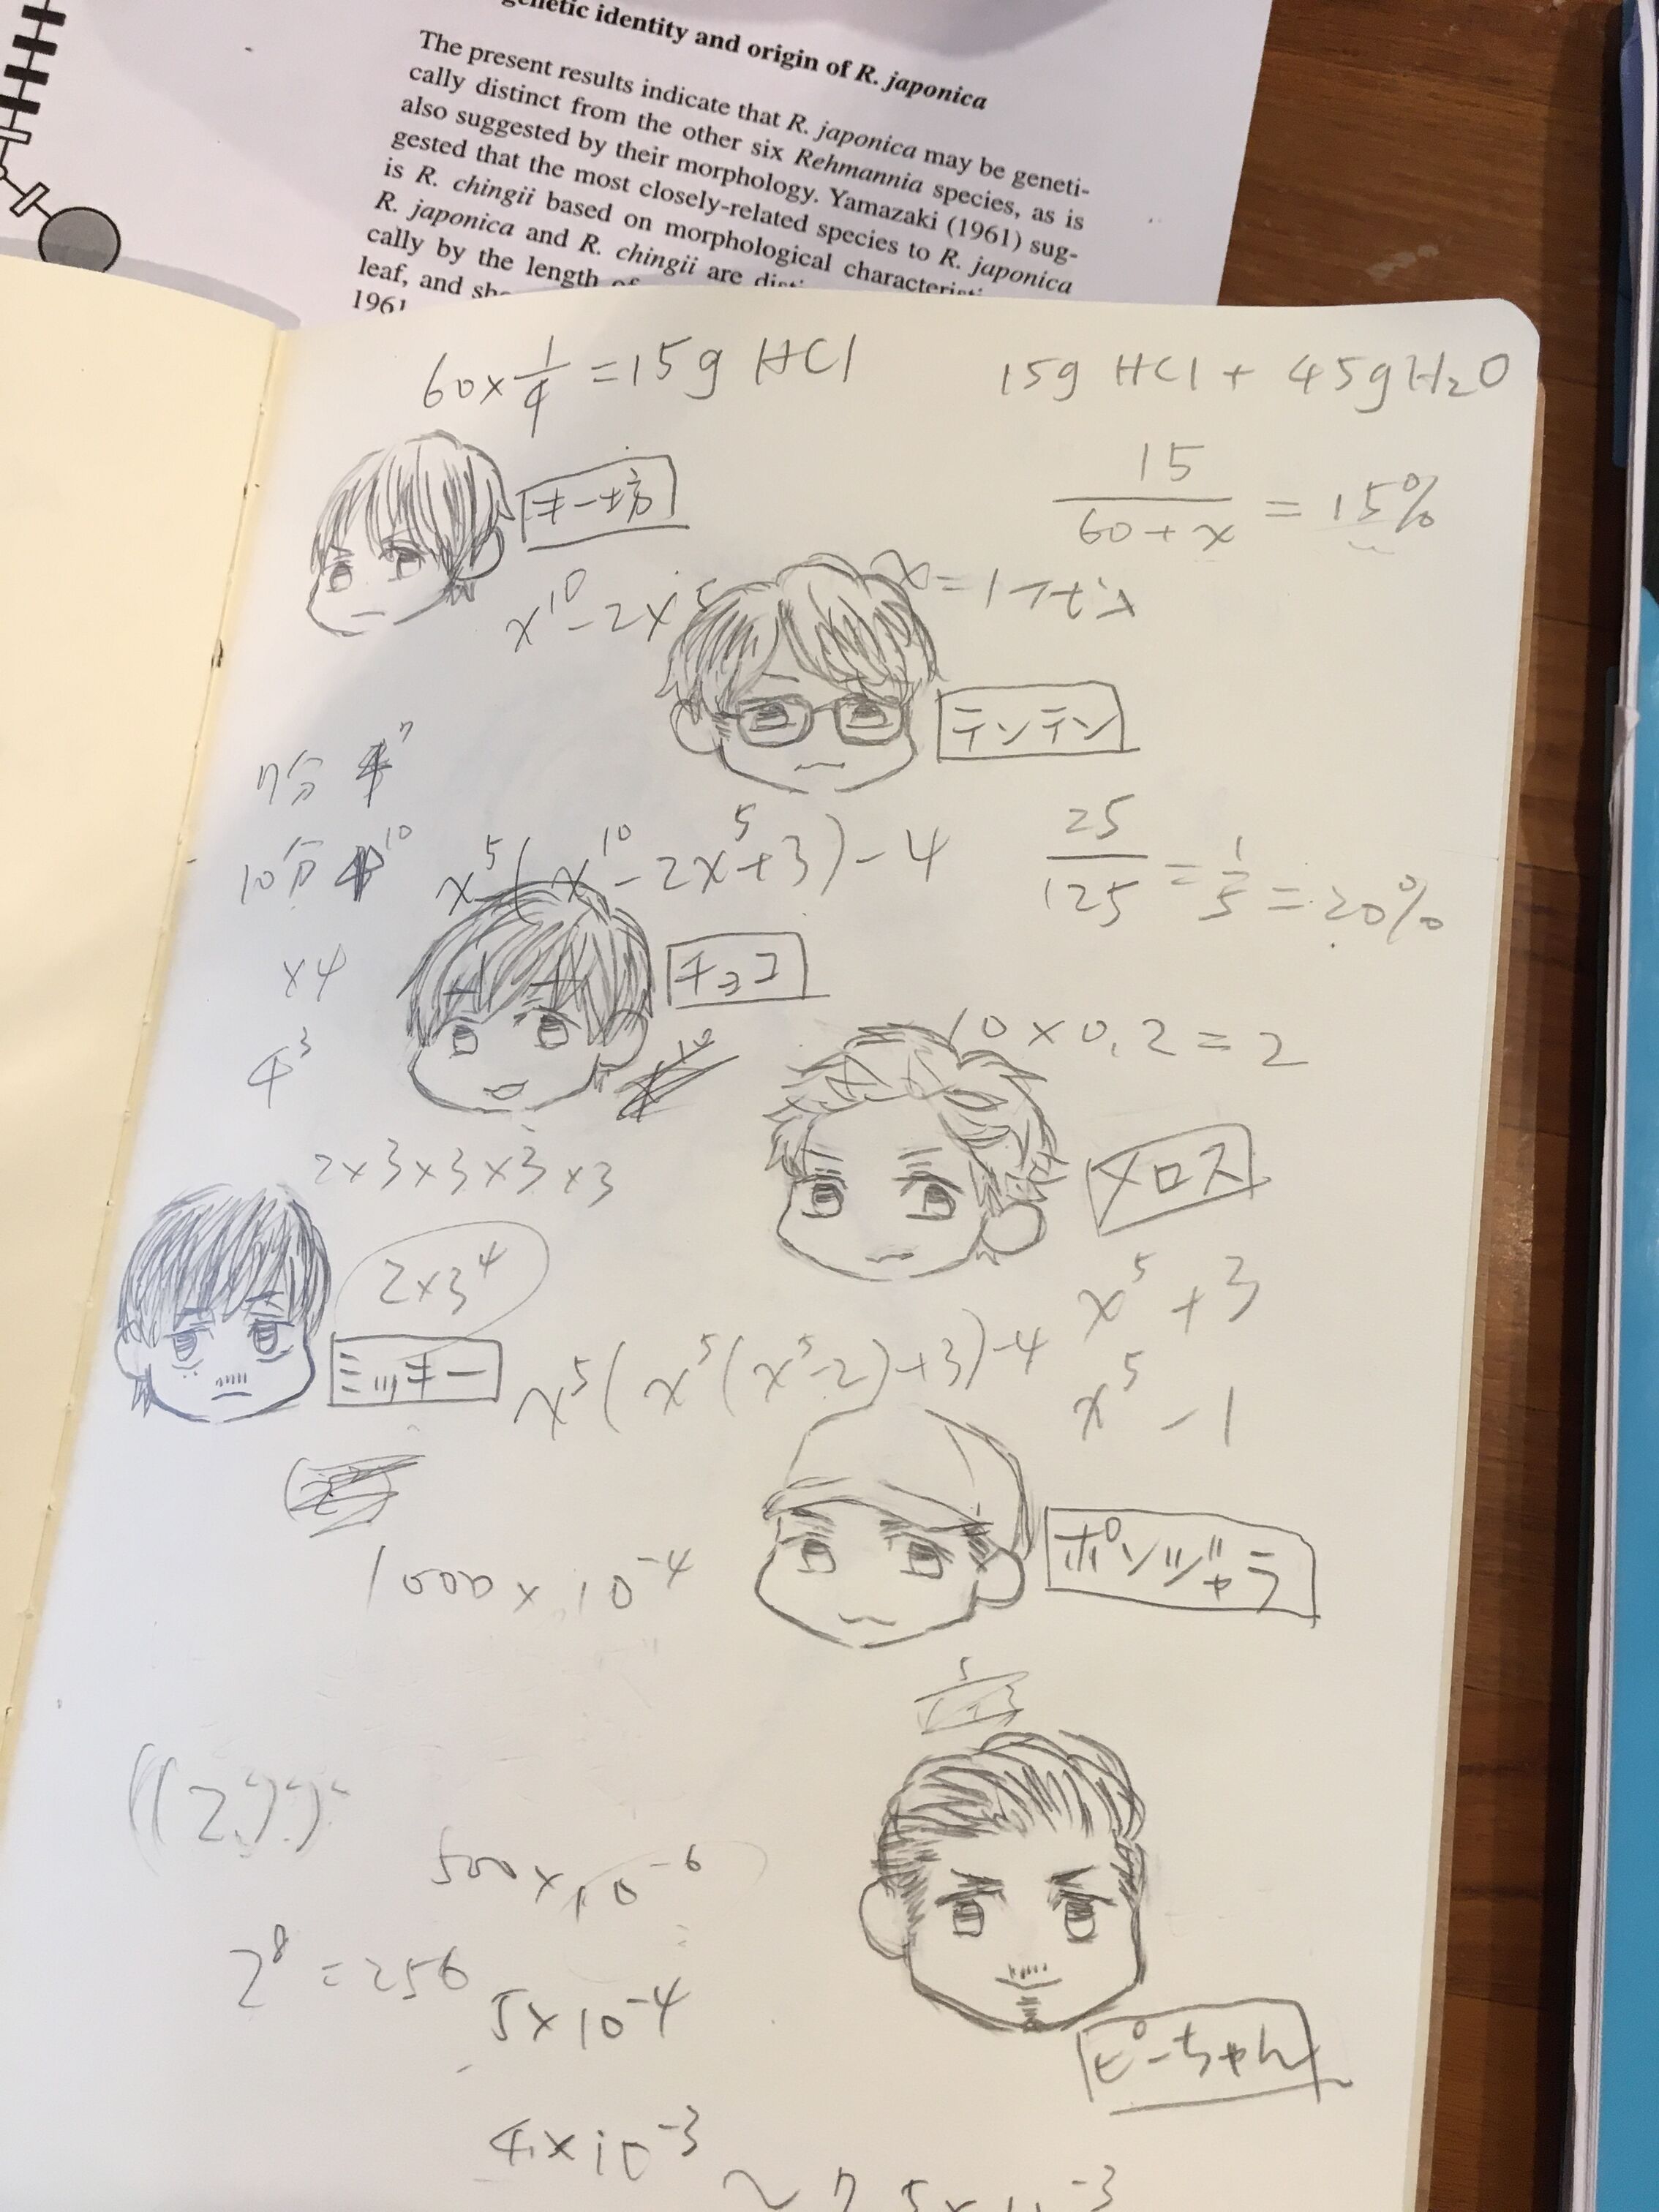 genetic identity and origin of R. japonica
The present results indicate that R. japonica may be geneti-
cally distinct from the other six Rehmannia species, as is
also suggested by their morphology. Yamazaki (1961) sug-
gested that the most closely-related species to R. japonica
is R. chingii based on morphological
R. japonica and R. chingii are
cally by the length of
leaf, and
1961
60×1/4=15g HCl
15g HCl + 45gH₂O
キー坊
15/(60+x) = 15%
x¹⁰-2x⁵
テンテン
7分
10分
x⁵(x¹⁰-2x⁵+3)-4
25/125=1/5=20%
×4
チョコ
4³
10×0.2=2
2×3×3×3×3
メロス
2×3⁴
ミッキー
x⁵+3
x⁵(x⁵(x⁵-2)+3)-4
x⁵-1
1000×10⁻⁴
ポンジャラ
500×10⁻⁶
2⁸=256
5×10⁻⁴
ピーちゃん
4×10⁻³